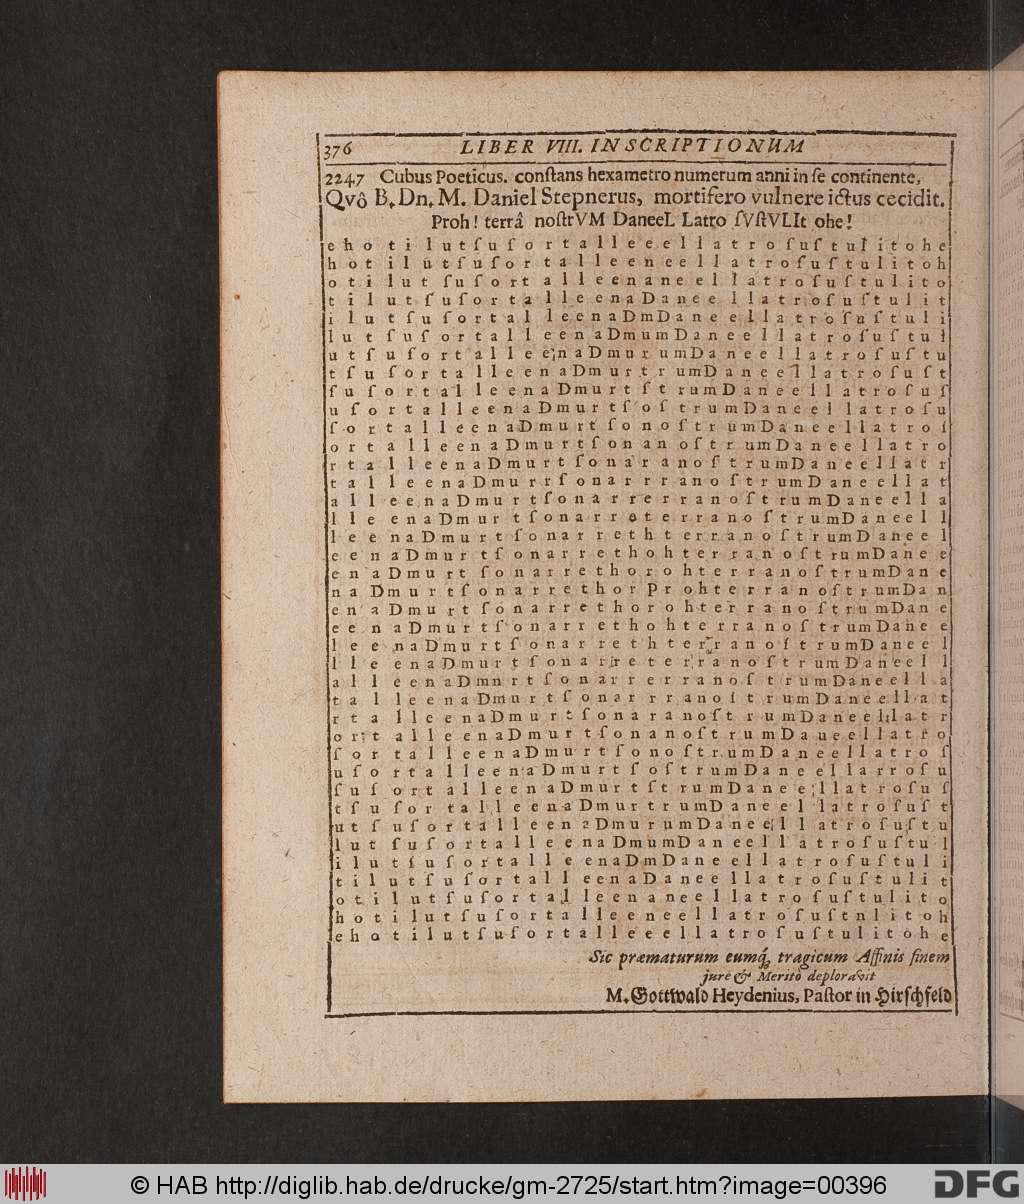 376 LIBER VIII. INSCRIPTIONUM
2247 Cubus Poeticus. conſtans hexametro numerum anni in ſe continente,
Qvô B. Dn. M. Daniel Stepnerus, mortifero vulnere ictus cecidit.
Proh! terrâ noſtrVM DaneeL Latro ſVſtVLIt ohe!
e h o t i l u t ſ u ſ o r t a l l e e e l l a t r o ſ u ſ t u l i t o h e
h o t i l u t ſ u ſ o r t a l l e e n e e l l a t r o ſ u ſ t u l i t o h
o t i l u t ſ u ſ o r t a l l e e n a n e e l l a t r o ſ u ſ t u l i t o
t i l u t ſ u ſ o r t a l l e e n a D a n e e l l a t r o ſ u ſ t u l i t
i l u t ſ u ſ o r t a l l e e n a D m D a n e e l l a t r o ſ u ſ t u l i
l u t ſ u ſ o r t a l l e e n a D m u m D a n e e l l a t r o ſ u ſ t u l
u t ſ u ſ o r t a l l e e n a D m u r u m D a n e e l l a t r o ſ u ſ t u
t ſ u ſ o r t a l l e e n a D m u r t r u m D a n e e l l a t r o ſ u ſ t
ſ u ſ o r t a l l e e n a D m u r t ſ t r u m D a n e e l l a t r o ſ u ſ
u ſ o r t a l l e e n a D m u r t ſ o ſ t r u m D a n e e l l a t r o ſ u
ſ o r t a l l e e n a D m u r t ſ o n o ſ t r u m D a n e e l l a t r o ſ
o r t a l l e e n a D m u r t ſ o n a n o ſ t r u m D a n e e l l a t r o
r t a l l e e n a D m u r t ſ o n a r a n o ſ t r u m D a n e e l l a t r
t a l l e e n a D m u r r ſ o n a r r r a n o ſ t r u m D a n e e l l a t
a l l e e n a D m u r t ſ o n a r r e r r a n o ſ t r u m D a n e e l l a
l l e e n a D m u r t ſ o n a r r e t e r r a n o ſ t r u m D a n e e l l
l e e n a D m u r t ſ o n a r r e t h t e r r a n o ſ t r u m D a n e e l
e e n a D m u r t ſ o n a r r e t h o h t e r r a n o ſ t r u m D a n e e
e n a D m u r t ſ o n a r r e t h o r o h t e r r a n o ſ t r u m D a n e
n a D m u r t ſ o n a r r e t h o r P r o h t e r r a n o ſ t r u m D a n
e n a D m u r t ſ o n a r r e t h o r o h t e r r a n o ſ t r u m D a n e
e e n a D m u r t ſ o n a r r e t h o h t e r r a n o ſ t r u m D a n e e
l e e n a D m u r t ſ o n a r r e t h t e r r a n o ſ t r u m D a n e e l
l l e e n a D m u r t ſ o n a r r e t e r r a n o ſ t r u m D a n e e l l
a l l e e n a D m n r t ſ o n a r r e r r a n o ſ t r u m D a n e e l l a
t a l l e e n a D m u r t ſ o n a r r r a n o ſ t r u m D a n e e l l a t
r t a l l e e n a D m u r t ſ o n a r a n o ſ t r u m D a n e e l l a t r
o r t a l l e e n a D m u r t ſ o n a n o ſ t r u m D a u e e l l a t r o
ſ o r t a l l e e n a D m u r t ſ o n o ſ t r u m D a n e e l l a t r o ſ
u ſ o r t a l l e e n a D m u r t ſ o ſ t r u m D a n e e l l a r r o ſ u
ſ u ſ o r t a l l e e n a D m u r t ſ t r u m D a n e e l l a t r o ſ u ſ
t ſ u ſ o r t a l l e e n a D m u r t r u m D a n e e l l a t r o ſ u ſ t
u t ſ u ſ o r t a l l e e n a D m u r u m D a n e e l l a t r o ſ u ſ t u
l u t ſ u ſ o r t a l l e e n a D m u m D a n e e l l a t r o ſ u ſ t u l
i l u t ſ u ſ o r t a l l e e n a D m D a n e e l l a t r o ſ u ſ t u l i
t i l u t ſ u ſ o r t a l l e e n a D a n e e l l a t r o ſ u ſ t u l i t
o t i l u t ſ u ſ o r t a l l e e n a n e e l l a t r o ſ u ſ t u l i t o
h o t i l u t ſ u ſ o r t a l l e e n e e l l a t r o ſ u ſ t n l i t o h
e h o t i l u t ſ u ſ o r t a l l e e e l l a t r o ſ u ſ t u l i t o h e
Sic præmaturum eumq́; tragicum Affinis finem
jure & Merito deploravit
M. Gottwald Heydenius, Paſtor in Hirſchfeld
© HAB http://diglib.hab.de/drucke/gm-2725/start.htm?image=00396
DFG